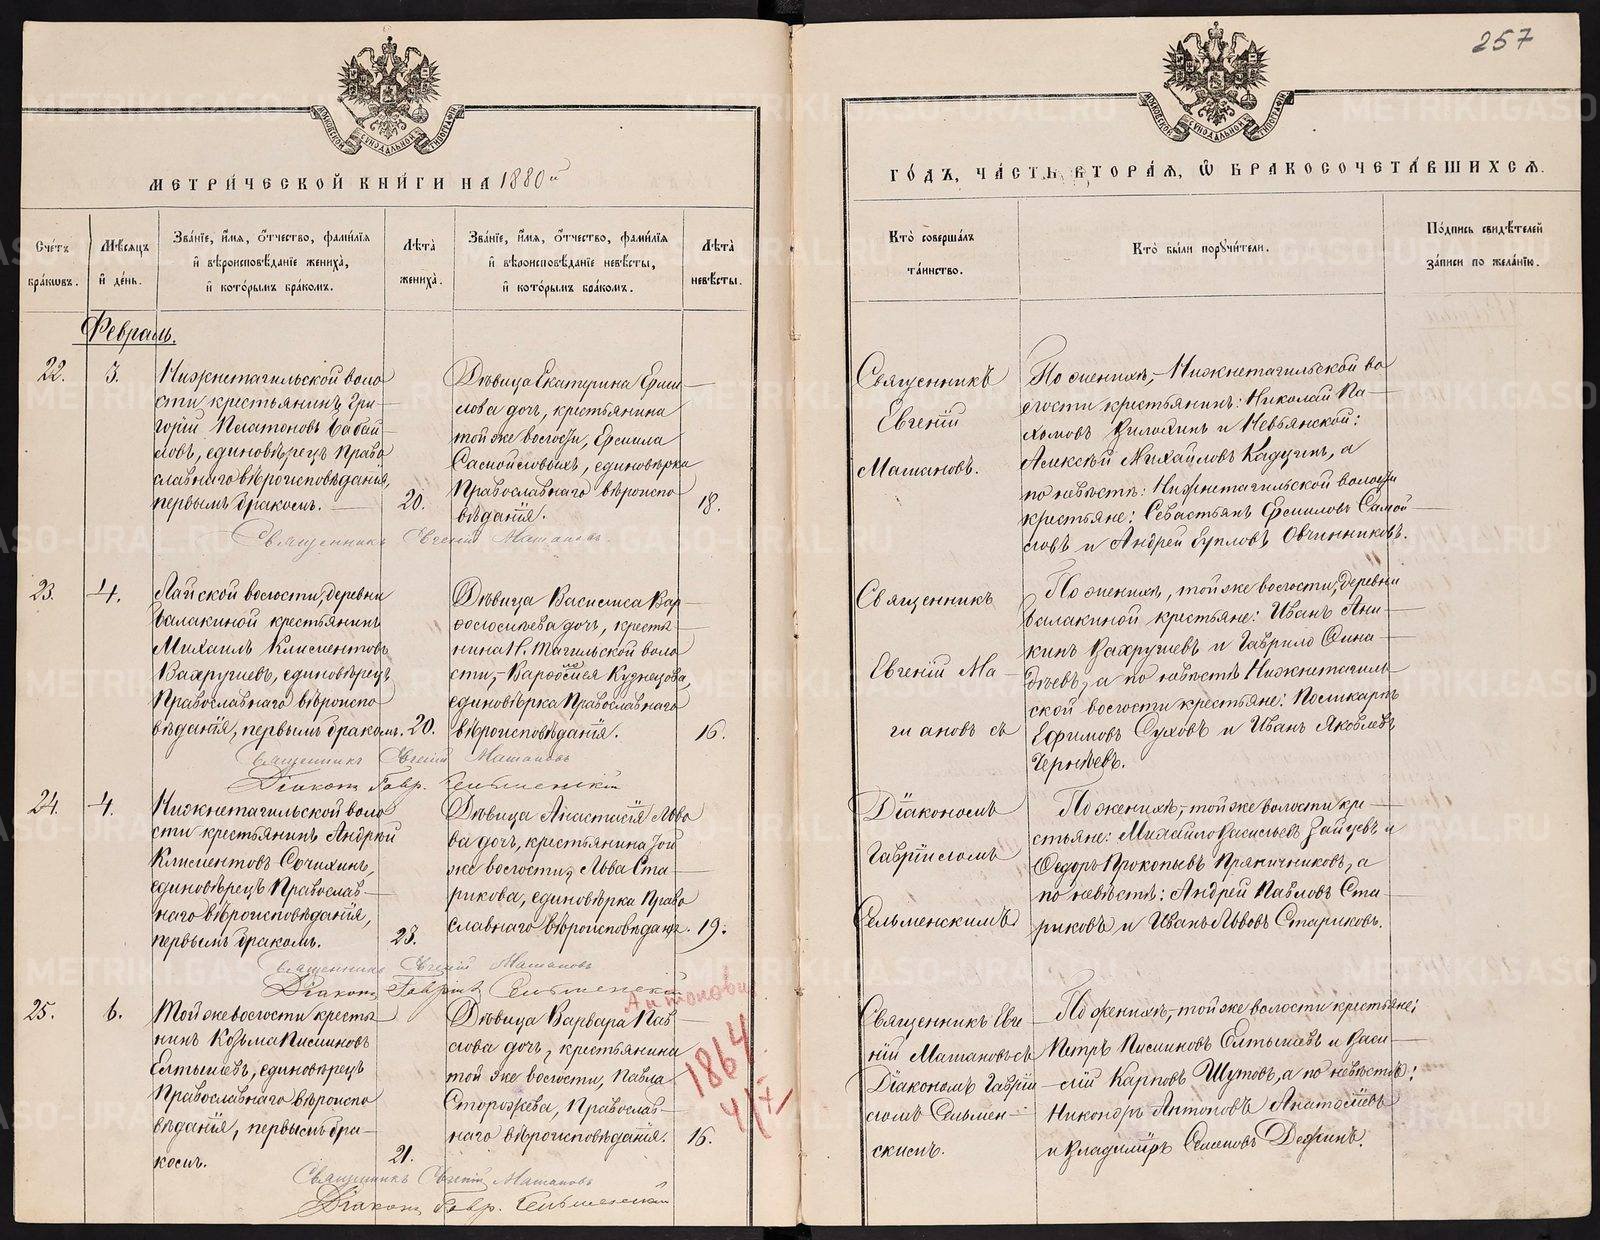 257
МОСКОВСКОЙ СѴНОДАЛЬНОЙ ТИПОГРАФІИ
МОСКОВСКОЙ СѴНОДАЛЬНОЙ ТИПОГРАФІИ
МЕТРИ́ЧЕСКОЙ КНИ́ГИ НА 1880й
ГО́ДЪ, ЧА́СТЬ ВТОРА́Я, Ѽ БРАКОСОЧЕТА́ВШИХСЯ.
Сче́тъ бра́кωвъ.
Мѣ́сяцъ и҆ де́нь.
Зва́нїе, и҆́мя, ѻ҆́тчество, фами́лїя и҆ вѣроисповѣ́данїе жениха̀, и҆ кото́рымъ бра́комъ.
Лѣ́та жениха̀.
Зва́нїе, и҆́мя, ѻ҆́тчество, фами́лїя и҆ вѣроисповѣ́данїе невѣ́сты, и҆ кото́рымъ бра́комъ.
Лѣ́та невѣ́сты.
Кто̀ соверша́лъ та́инство.
Кто̀ бы́ли порꙋчи́тели.
По́дпись свидѣ́телей за́писи по жела́нїю.
Февраль.
22.
3.
Нижнетагильской воло
сти крестьянинъ Гри-
горій Платоновъ
единовѣрецъ Право
славнаго вѣроисповѣданія,
первымъ бракомъ.
20.
Дѣвица Екатерина Ерми-
лова дочь, крестьянина
той же волости, Ермила
Самойловыхъ, единовѣрка
Православнаго вѣроиспо
вѣданія.
18.
Священникъ
Евгеній
Матановъ.
По женихѣ,- Нижнетагильской во
лости крестьянинъ: Николай Па-
хомовъ и Невьянской:
Алексѣй Михайловъ а
по невѣстѣ: Нижнетагильской волости
крестьяне: Севастьянъ Ермиловъ Самой-
ловъ и Андрей Овчинниковъ.
Священникъ Евгеній Матановъ.
23.
4.
Лайской волости, деревни
Балакиной крестьянинъ
Михаилъ Климентовъ
Вахрушевъ, единовѣрецъ
Православнаго вѣроиспо
вѣданія, первымъ бракомъ.
20.
Дѣвица Василиса Вар-
фоломеева дочь, крестья-
нина Н. Тагильской воло
сти,- Варфоломея Кузнецова,
единовѣрка Православнаго
вѣроисповѣданія.
16.
Священникъ
Евгеній Ма-
тановъ съ
По женихѣ, той же волости, деревни
Балакиной крестьяне: Иванъ Ани-
кинъ Вахрушевъ и Гаврило
а по невѣстѣ Нижнетагиль-
ской волости крестьяне: Поликарпъ
Ефимовъ Суховъ и Иванъ Яковлевъ
Черняевъ.
Священникъ Евгеній Матановъ
Діаконъ Гавр. Сельменскій
24.
4.
Нижнетагильской воло
сти крестьянинъ Андрей
Климентовъ Сочихинъ,
единовѣрецъ Православ-
наго вѣроисповѣданія,
первымъ бракомъ.
23.
Дѣвица Анастасія Льво
ва дочь, крестьянина той
же волости, Льва Ста-
рикова, единовѣрка Право
славнаго вѣроисповѣданія.
19.
Діакономъ
Гавріиломъ
Сельменскимъ
По женихѣ,- той же волости кре-
стьяне: Михайло Васильевъ Зайцевъ и
Федоръ Прокопьевъ Пряничниковъ, а
по невѣстѣ: Андрей Павловъ Ста-
риковъ и Иванъ Львовъ Стариковъ.
Священникъ Евгеній Матановъ
Діаконъ Гавріилъ Сельменскій
25.
6.
Той же волости крестья
нинъ Козьма Пименовъ
Елтышевъ, единовѣрецъ
Православнаго вѣроиспо
вѣданія, первымъ бра-
комъ.
21.
Дѣвица Варвара Пав-
лова дочь, крестьянина
той же волости, Павла
Сторожева, Православ-
наго вѣроисповѣданія.
16.
1864
4/X
Священникъ Евге-
ній Матановъ съ
Діакономъ Гаврі-
иломъ Сельмен-
скимъ.
По женихѣ,- той же волости крестьяне:
Петръ Пименовъ Елтышевъ и Васи-
лій Карповъ Шутовъ, а по невѣстѣ:
Никаноръ Антоновъ
и Владиміръ Семеновъ
Священникъ Евгеній Матановъ
Діаконъ Гавр. Сельменскій
METRIKI.GASO-URAL.RU